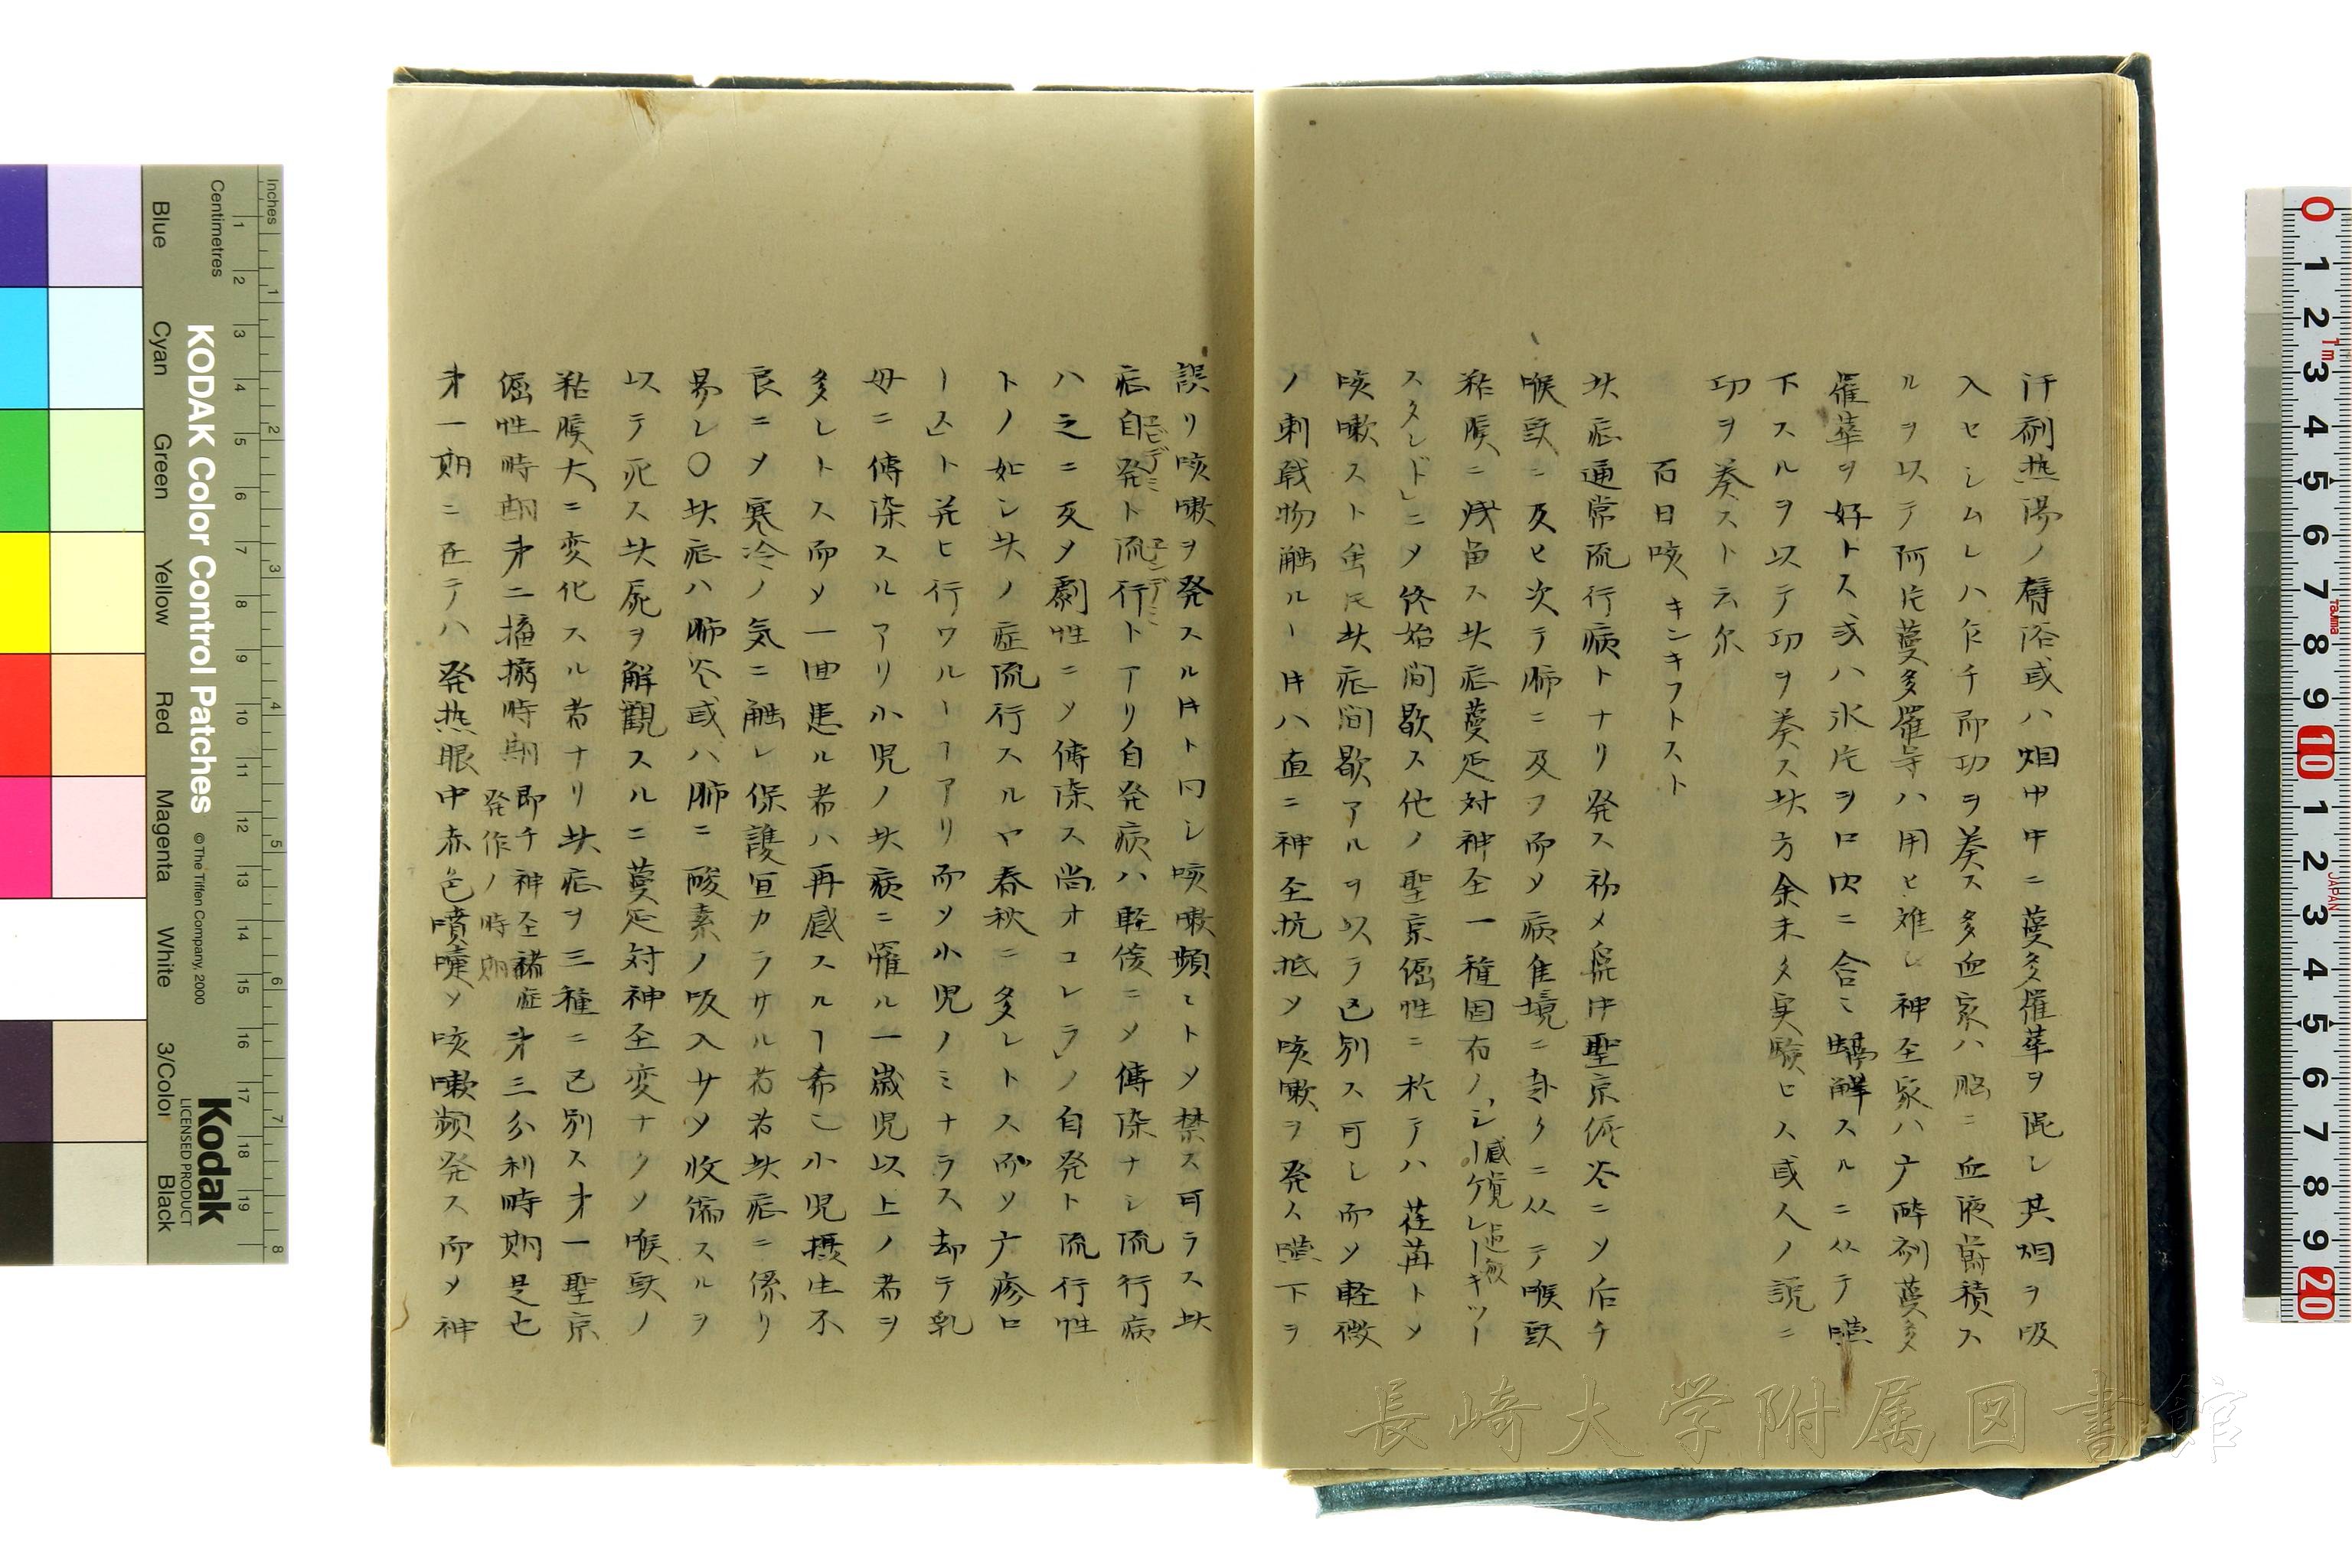 汗剤热湯ノ蓐浴或ハ烟中ニ蔓多羅華ヲ混シ其烟ヲ吸
入セシムレハ乍チ即功ヲ奏ス多血家ハ脳ニ血液欝積ス
ルヲ以テ阿片蔓多羅等ハ用ヒ難シ神圣家ハ广酔剤蔓多
羅華ヲ好トス或ハ氷片ヲ口内ニ含ミ觧スルニ从テ嚥
下スルヲ以テ功ヲ奏ス此方余未タ実験セス或人ノ説ニ
功ヲ奏スト云尓
百日咳 キンキフトスト
此症通常流行病トナリ発ス初メ聖京ニ乄后チ
喉頭ニ及ヒ次テ肺ニ及フ而乄病佳境ニ赴クニ从テ喉頭
粘膜ニ残留ス此症蔓延対神圣一種固有ノ感覚過敏
スタレド」ニ乄終始间歇ス他ノ聖京傴性ニ於テハ荏苒ト乄
咳嗽スト虽𪜈此症间歇アルヲ以テ区别ス可シ而乄軽微
ノ刺戟物触ルヿ片ハ直ニ神圣抗抵乄咳嗽ヲ発ス嚥下ヲ
誤リ咳嗽ヲ発スル片ト同シ咳嗽頻ミト乄禁ス可ラス此
症自発ト流行トアリ自発病ハ軽傻ニ乄傳染ナシ流行病
ヱピデミ ヱンデミ
ハ之ニ反乄劇性ニ乄傳染ス尚オコレラ」ノ自発ト流行性
トノ如シ此ノ症流行スルヤ春秋ニ多シトス而乄广疹ロ
ース」ト并ヒ行ワルヽヿアリ而乄小児ノミナラス却テ乳
母ニ傳染スルアリ小児ノ此病ニ罹ル一歳児以上ノ者ヲ
多シトス而乄一囬患ル者ハ再感スルヿ希也小児摂生不
良ニ乄寒冷ノ気ニ触レ保護宜カラサル者此症ニ係リ
易シ〇此症ハ肺炎或ハ肺ニ酸素ノ吸入サ乄收縮スルヲ
以テ死ス此屍ヲ解観スルニ蔓延対神圣変ナク乄喉頭ノ
粘膜大ニ変化スル者ナリ此症ヲ三種ニ区别ス才一聖京
傴性時期才二搐搦時期 即チ神圣諸症 発作ノ時期 才三分利時期是也
才一期ニ在テハ発热眼中赤色噴嚏乄咳嗽頻発ス而乄神
Inches
Centimetres
Blue Cyan Green Yellow Red Magenta White 3/Color Black
KODAK Color Control Patches
© The Tiffen Company, 2000
Kodak
LICENSED PRODUCT
0 1 2 3 4 5 6 7 8 9 10 1 2 3 4 5 6 7 8 9 20
1m
Tajima
JAPAN
長崎大学附属図書館